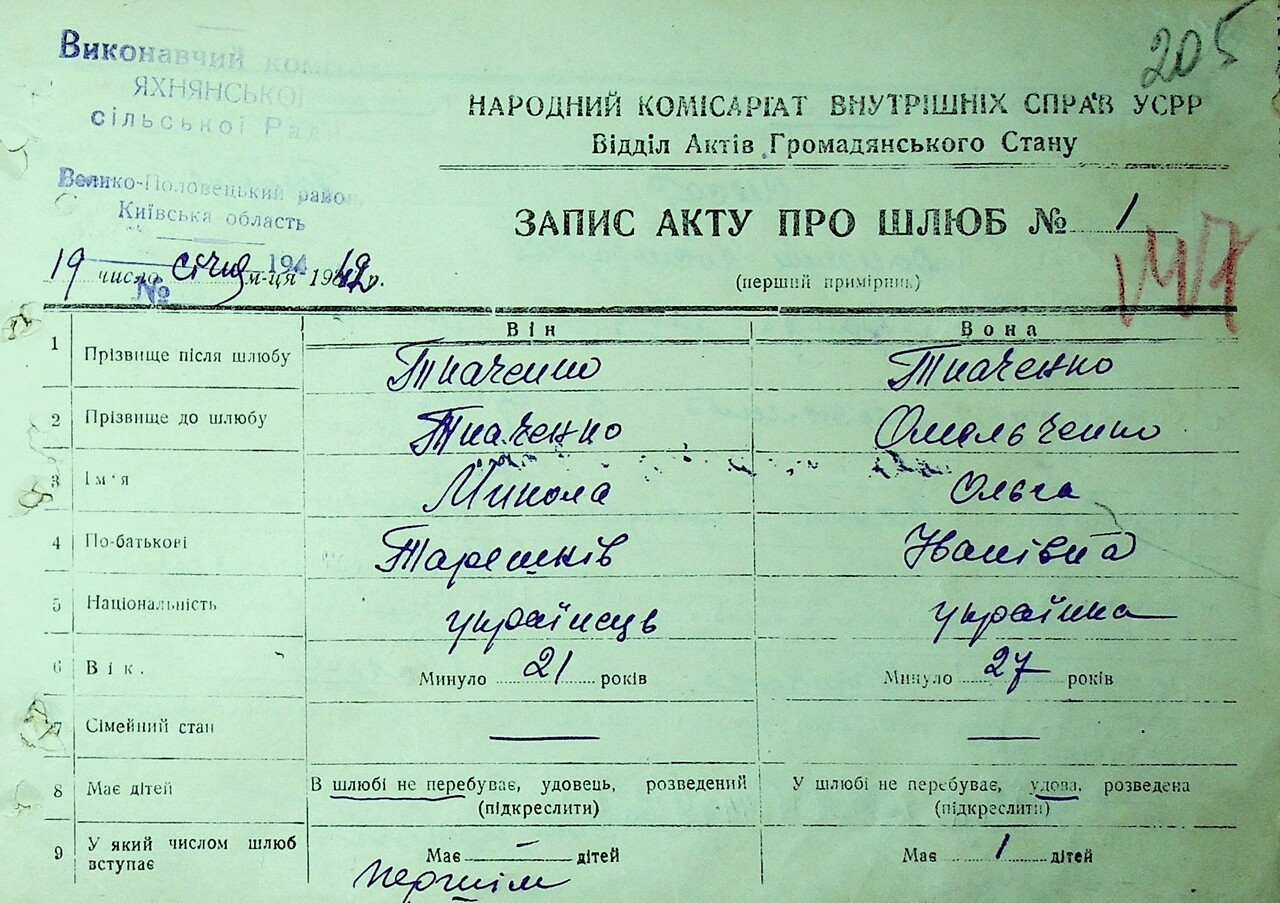 205
Виконавчий коміт
ЯХНЯНСЬКОЇ
сільської Ради
Велико-Половецький район,
Київська область
194
№
НАРОДНИЙ КОМІСАРІАТ ВНУТРІШНІХ СПРАВ УСРР
Відділ Актів Громадянського Стану
ЗАПИС АКТУ ПРО ШЛЮБ № 1
(перший примірник)
19 число січня м-ця 1942 р.
Він Вона
1 Прізвище після шлюбу Ткаченко Ткаченко
2 Прізвище до шлюбу Ткаченко Омельченко
3 Ім'я Микола Ольга
4 По-батькові Іванівна
5 Національність українець українка
6 Вік. Минуло 21 років Минуло 27 років
7 Сімейний стан — —
8 Має дітей В шлюбі не перебуває, удовець, розведений У шлюбі не перебуває, удова, розведена
(підкреслити) (підкреслити)
9 У який числом шлюб вступає Має — дітей Має 1 дітей
першім